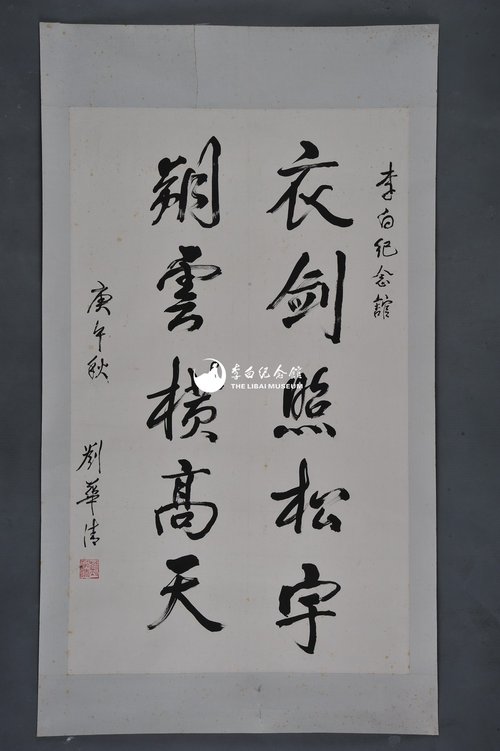 李白纪念館
衣剑照松宇
朔雲横高天
庚午秋
劉華清
李白纪念館
THE LIBAI MUSEUM